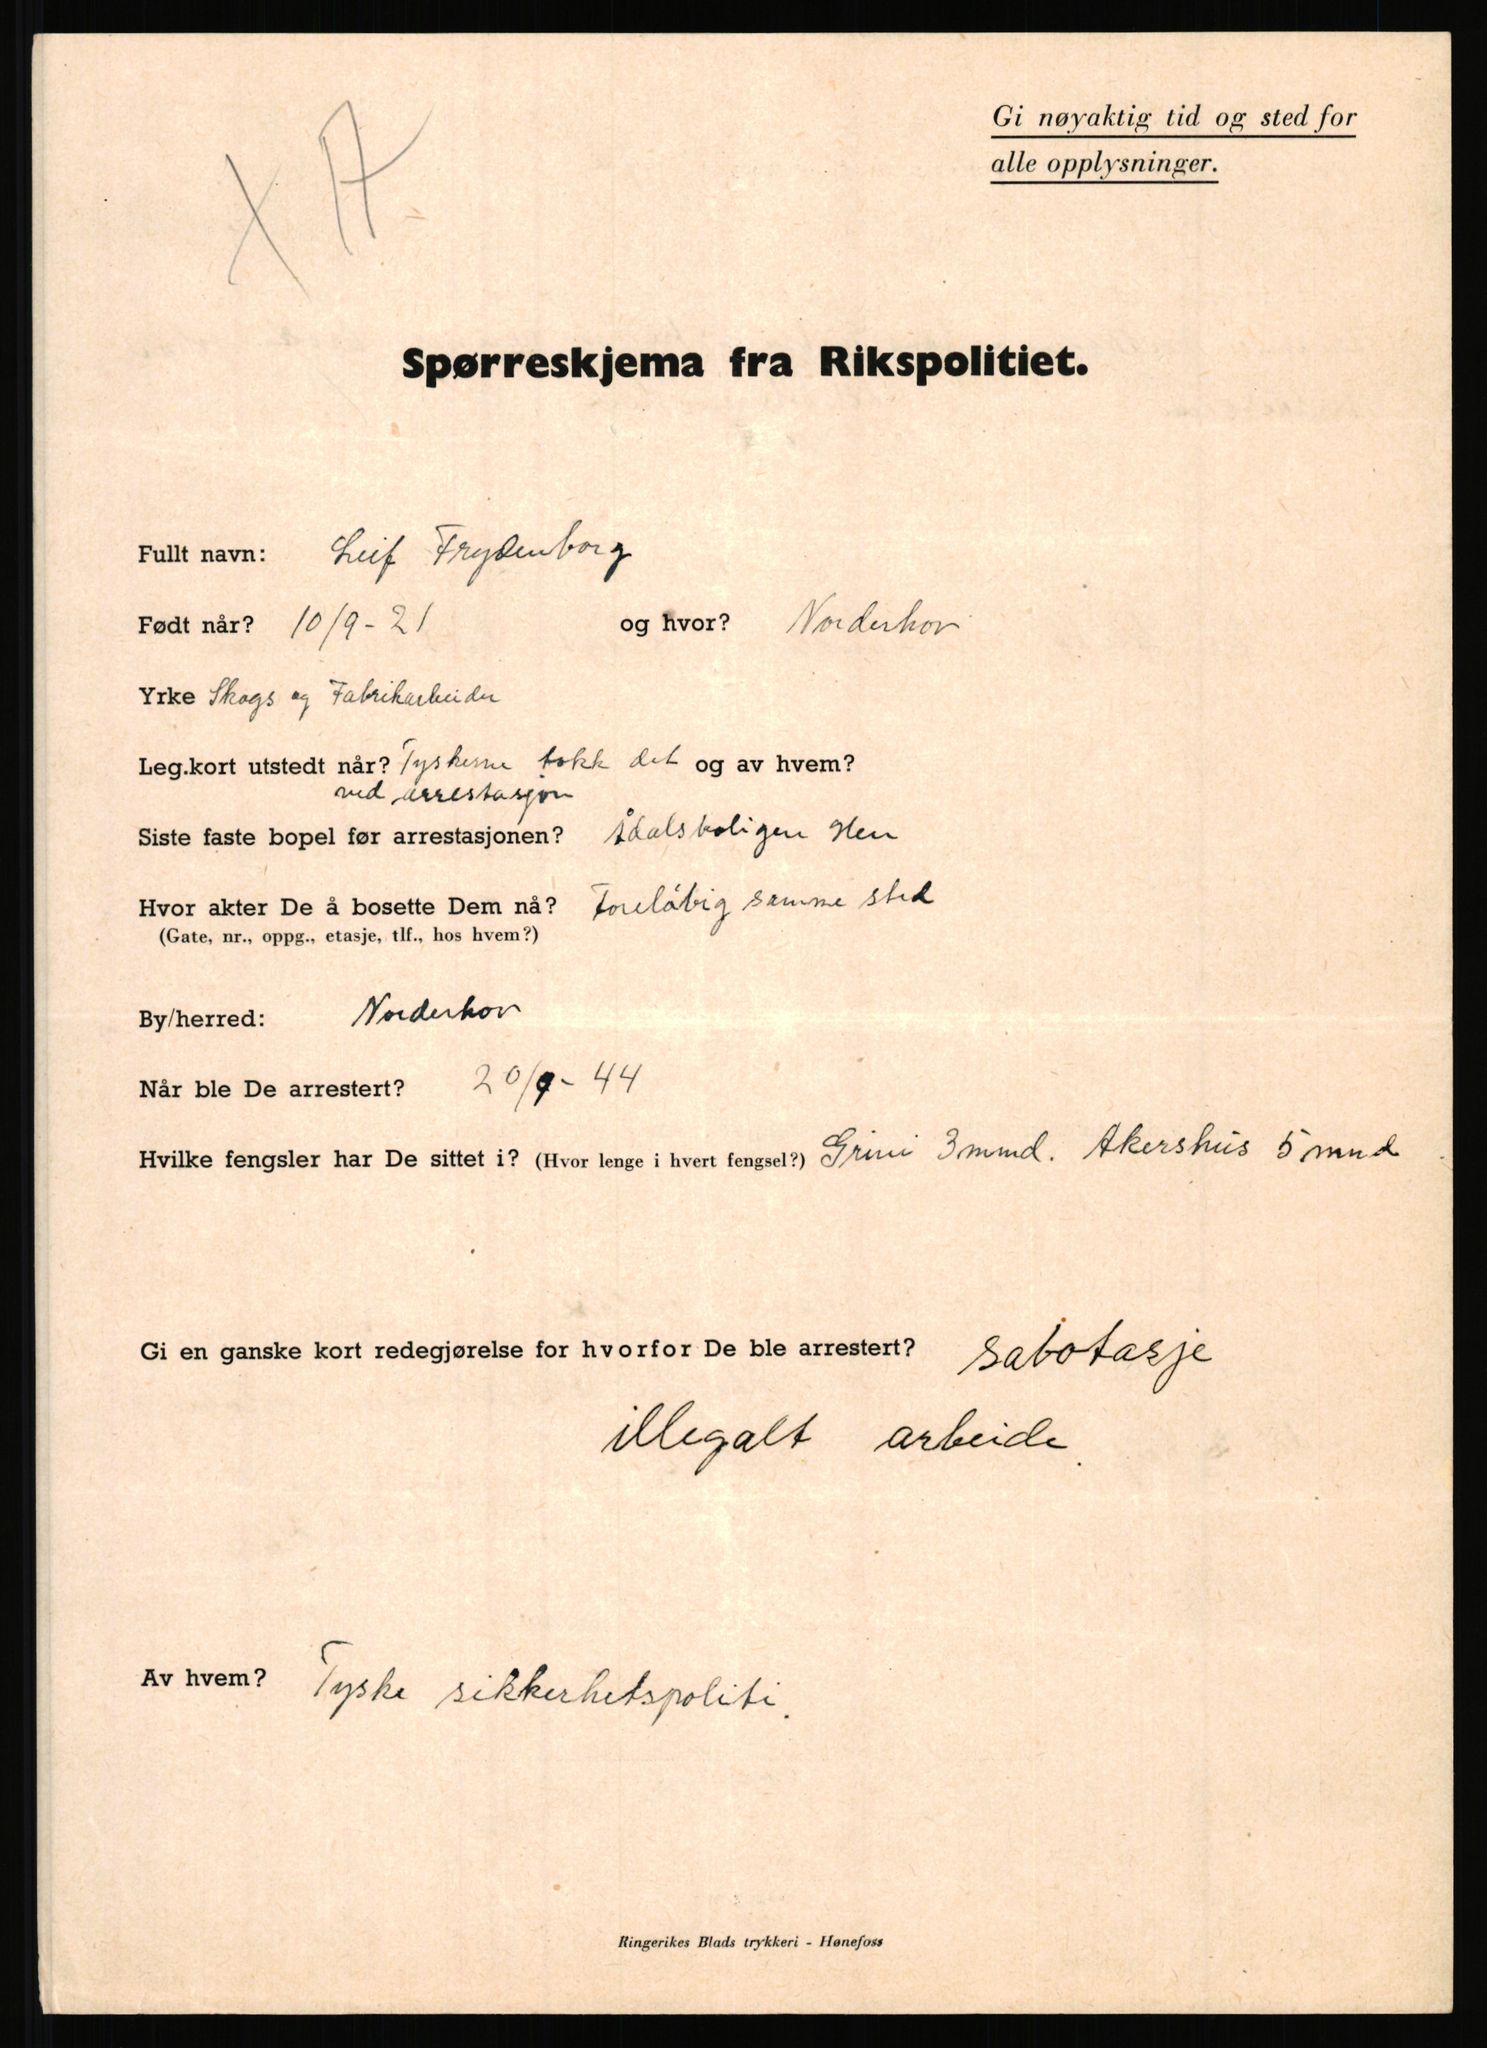 X A
Gi nøyaktig tid og sted for
alle opplysninger.
Spørreskjema fra Rikspolitiet.
Fullt navn: Leif Frydenborg
Født når? 10/9-21 og hvor? Norderhov
Yrke Skogs og Fabrikarbeider
Leg.kort utstedt når? Tyskerne tokk det og av hvem?
ved arrestasjon
Siste faste bopel før arrestasjonen? Ådalsboligen Hen
Hvor akter De å bosette Dem nå? Foreløbig samme sted
(Gate, nr., oppg., etasje, tlf., hos hvem?)
By/herred: Norderhov
Når ble De arrestert? 20/9-44
Hvilke fengsler har De sittet i? (Hvor lenge i hvert fengsel?) Grini 3 mnd. Akershus 5 mnd
Gi en ganske kort redegjørelse for hvorfor De ble arrestert? sabotasje
illegalt arbeide.
Av hvem? Tyske sikkerhetspoliti.
Ringerikes Blads trykkeri - Hønefoss